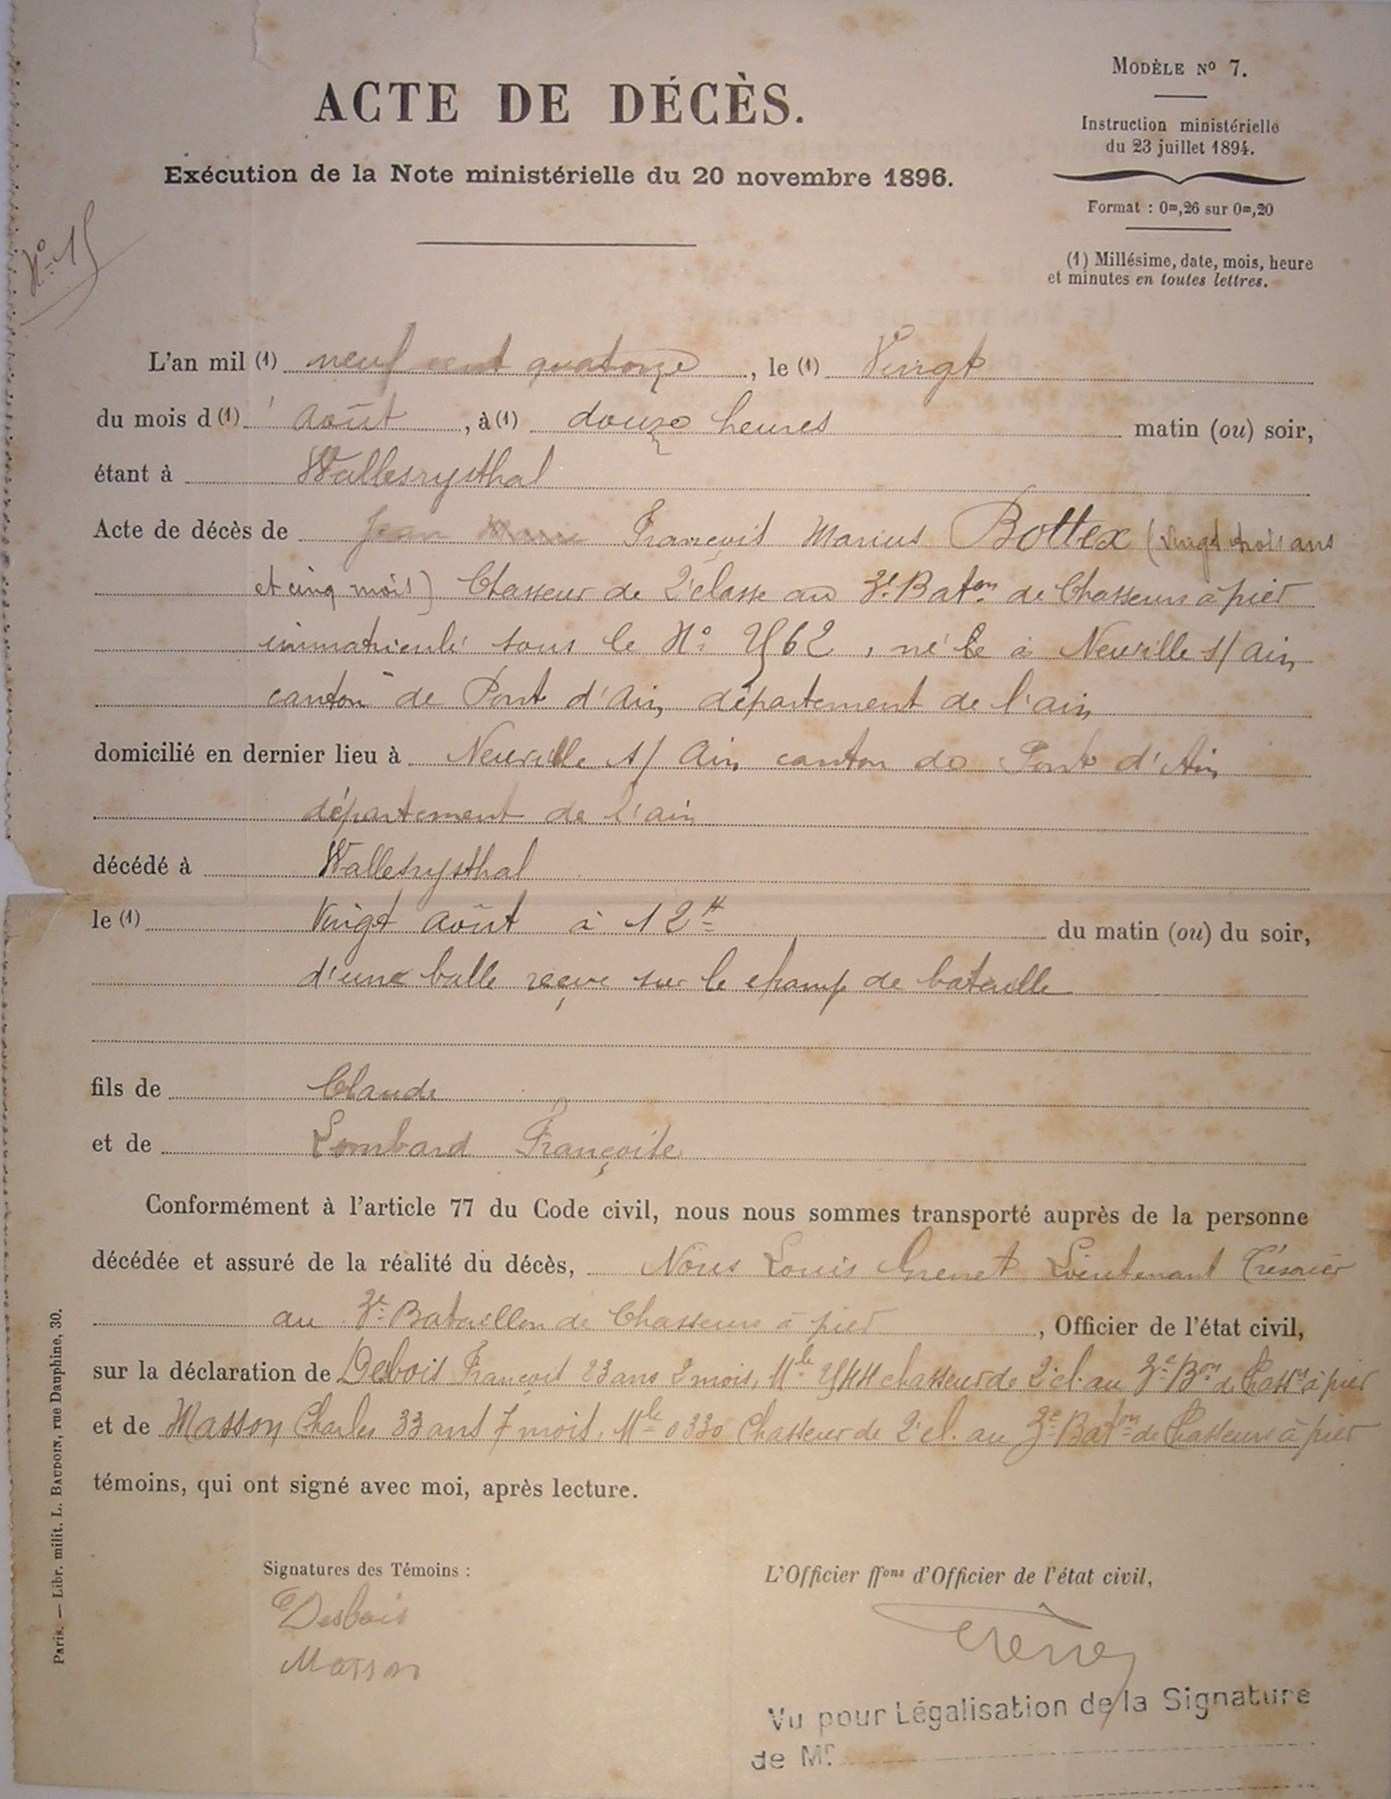 ACTE DE DÉCÈS.
Exécution de la Note ministérielle du 20 novembre 1896.
Modèle No 7.
Instruction ministérielle
du 23 juillet 1894.
Format : 0m,26 sur 0m,20
(1) Millésime, date, mois, heure
et minutes en toutes lettres.
No 15
L'an mil (1) neuf cent quatorze, le (1) Vingt
du mois d (1) août, à (1) douze heures matin (ou) soir,
étant à Wallesrysthal
Acte de décès de Jean François Marius Bottex (vingt trois ans
et cinq mois) Chasseur de 2e classe au 3e Baton de Chasseurs à pied
immatriculé sous le No , né le à Neuville s/ ain,
canton de Pont d'Ain, département de l'ain
domicilié en dernier lieu à Neuville s/ Ain, canton de Pont d'Ain
département de l'ain
décédé à Wallesrysthal
le (1) Vingt août à 12 H du matin (ou) du soir,
d'une balle reçue sur le champ de bataille
fils de Claude
et de Lombard Françoise
Conformément à l'article 77 du Code civil, nous nous sommes transporté auprès de la personne
décédée et assuré de la réalité du décès, Nous Louis Lieutenant Trésorier
au 3e Bataillon de Chasseurs à pied, Officier de l'état civil,
sur la déclaration de Desbois François 23 ans 2 mois, Mle chasseur de 2e cl. au 3e Bon de Chassrs à pied
et de Masson Charles 33 ans 7 mois, Mle 0330 Chasseur de 2e cl. au 3e Baton de Chasseurs à pied
témoins, qui ont signé avec moi, après lecture.
Signatures des Témoins :
Desbois
Masson
L'Officier ffons d'Officier de l'état civil,
Vu pour Légalisation de la Signature
de Mr.
Paris. — Libr. milit. L. Baudoin, rue Dauphine, 30.